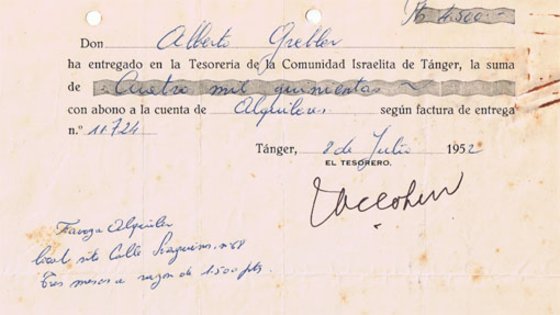 4.500=
Don Alberto Grebler
ha entregado en la Tesorería de la Comunidad Israelita de Tánger, la suma
de Cuatro mil quinientas
con abono a la cuenta de Alquileres según factura de entrega
n.º 11.724
Tánger, 8 de Julio 1952
EL TESORERO.
Alquiler
local sito Calle nº 68
Tres meses a razon de 1.500 pts.